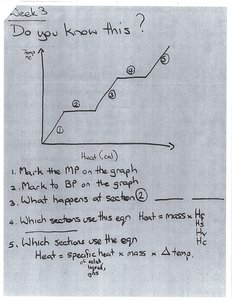 Week 3
Do you know this?
Temp
°C
①
②
③
④
⑤
Heat (cal)
1. Mark the MP on the graph
2. Mark to BP on the graph
3. What happens at section ②
4. Which sections use this eqn Heat = mass x Hf
Hs
Hv
Hc
5. Which sections use the eqn
Heat = specific heat x mass x Δ temp.
of solid,
liquid,
gas